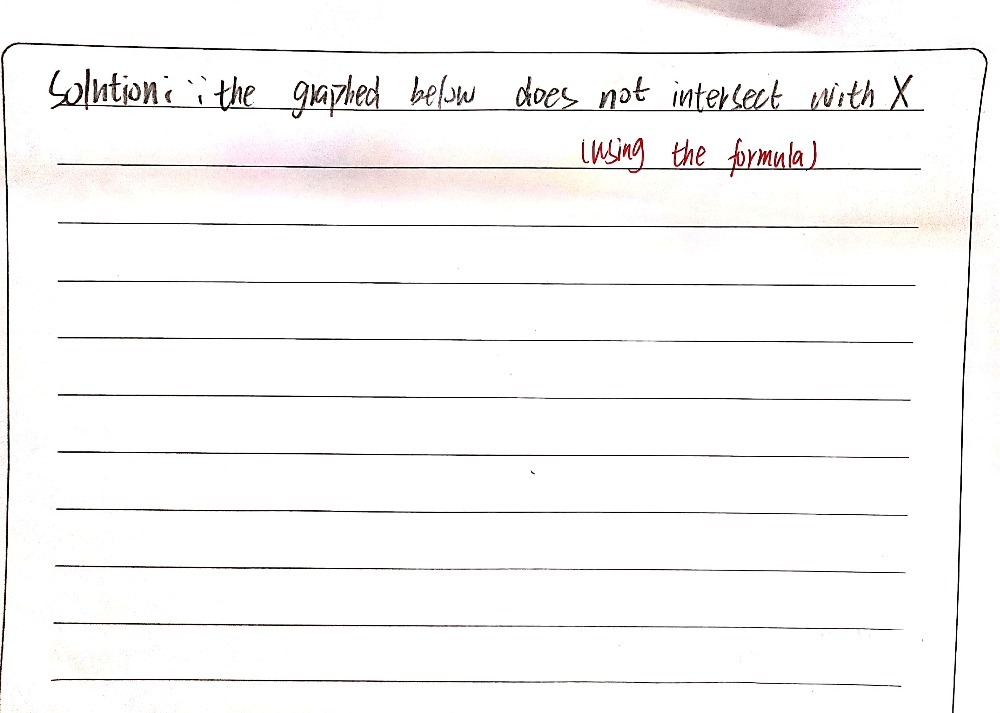 Solution: ∵ the graphed below does not intersect with X
(using the formula)